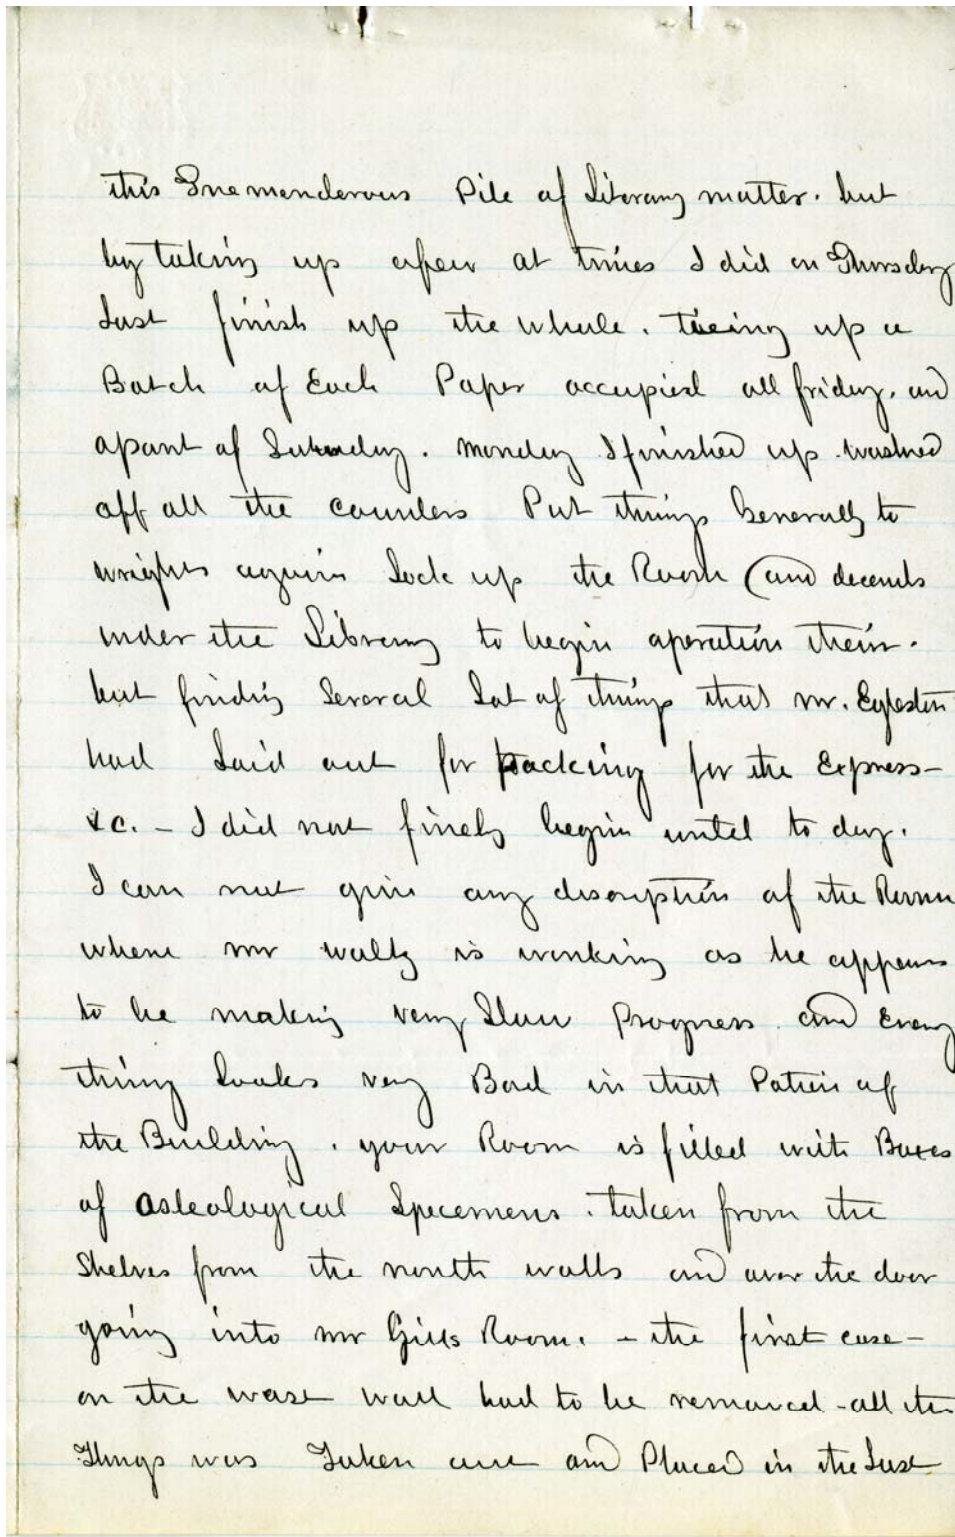 this Tremenderous Pile of Literary matter. but
by taking up afew at times I did on Thursday
Last finish up the whole. tieing up a
Batch of Each Paper occupied all friday. and
apart of Saturday. Monday I finished up washed
off all the counters Put things Generally to
wrights again Lock up the Room (and decends
under the Library to begin operation their.
but finding Several Lot of things that mr. Egleston
had Laid out for packing for the Express—
&c. — I did not finely begin until to day.
I can not give any discription of the Room
where mr waltz is working as he appears
to be making very Slow Progress and Every
thing Looks very Bad in that Potion of
the Building. your Room is filled with Boxes
of Osteological Specemens. taken from the
Shelves from the north walls and over the door
going into mr Gills Room. — the first case —
on the wase wall had to be removed - all the
Things was Taken out and Placed in the Last